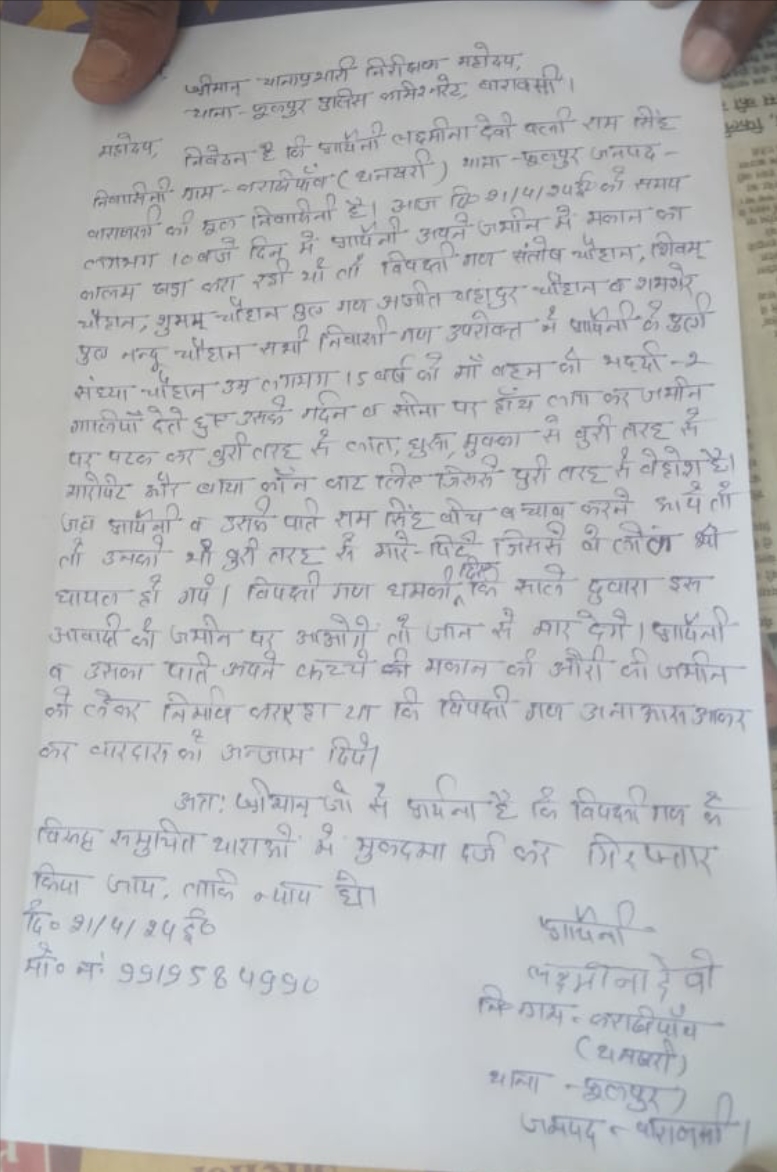 श्रीमान थानाप्रभारी निरीक्षक महोदय,
थाना-फूलपुर पुलिस कमिश्नरेट, वाराणसी।
महोदय,
निवेदन है कि प्रार्थिनी लक्ष्मीना देवी पत्नी राम सिंह
निवासिनी ग्राम - (थनवरी) थाना-फूलपुर जनपद-
वाराणसी की मूल निवासिनी है। आज दि० 21/4/24ई० को समय
लगभग 10 बजे दिन में प्रार्थिनी अपने जमीन में मकान का
कालम खड़ा करा रही थी तो विपक्षी गण संतोष चौहान, शिवम्
चौहान, शुभम् चौहान पुत्र गण अजीत बहादुर चौहान व शमशेर
पुत्र नन्दू चौहान सभी निवासी गण उपरोक्त ने प्रार्थिनी के पुत्री
संध्या चौहान उम्र लगभग 15 वर्ष को माँ बहन की भद्दी-2
गालियाँ देते हुए उसके गर्दन व सीना पर हाँथ लगा कर जमीन
पर पटक कर बुरी तरह से लात, घुसा, मुक्का से बुरी तरह से
मारेपिटे और बाया कॉन काट लिए जिससे पुरी तरह से बेहोश है।
जब प्रार्थिनी व उसके पति राम सिंह बीच बचाव करने आये तो
तो उनको भी बुरी तरह से मारे-पिटे जिससे वे लोग भी
घायल हो गये। विपक्षी गण धमकी दिए कि साले दुवारा इस
आवादी की जमीन पर आओगे तो जान से मार देगे। प्रार्थिनी
व उसका पति अपने कच्चे की मकान की औरी की जमीन
को लेकर निर्माण करा रहा था कि विपक्षी गण अनाआस आकर
कर वारदात को अन्जाम दिये।
अतः श्रीमान् जी से प्रार्थना है कि विपक्षी गण के
विरूद्ध समुचित धाराओं में मुकदमा दर्ज कर गिरफ्तार
किया जाय, ताकि न्याय हो।
दि० 21/4/24 ई०
मो० नं० 9919584990
प्रार्थिनी
लक्ष्मीना देवी
नि० ग्राम -
(थनवरी)
थाना - फूलपुर
जनपद - वाराणसी।